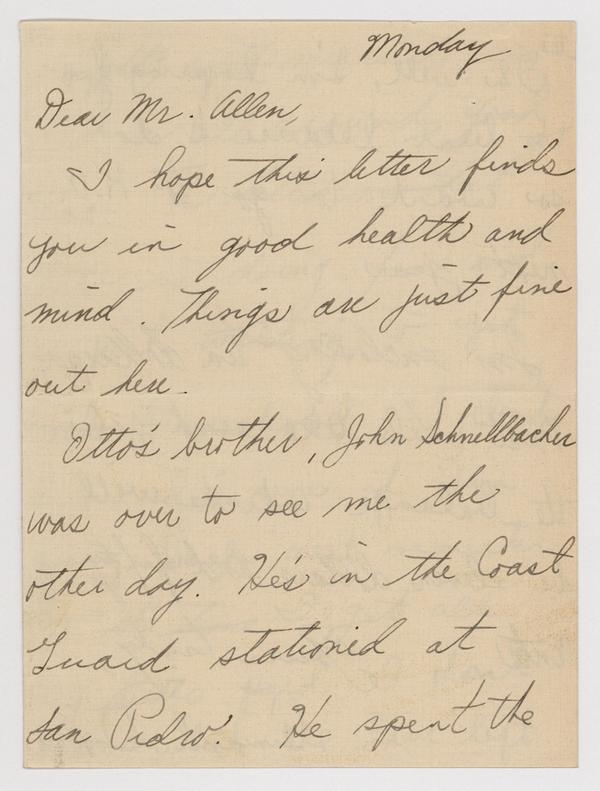 Monday
Dear Mr. Allen,
I hope this letter finds
you in good health and
mind. Things are just fine
out here.
Otto's brother, John Schnellbacher
was over to see me the
other day. He's in the Coast
Guard stationed at
San Pedro. He spent the